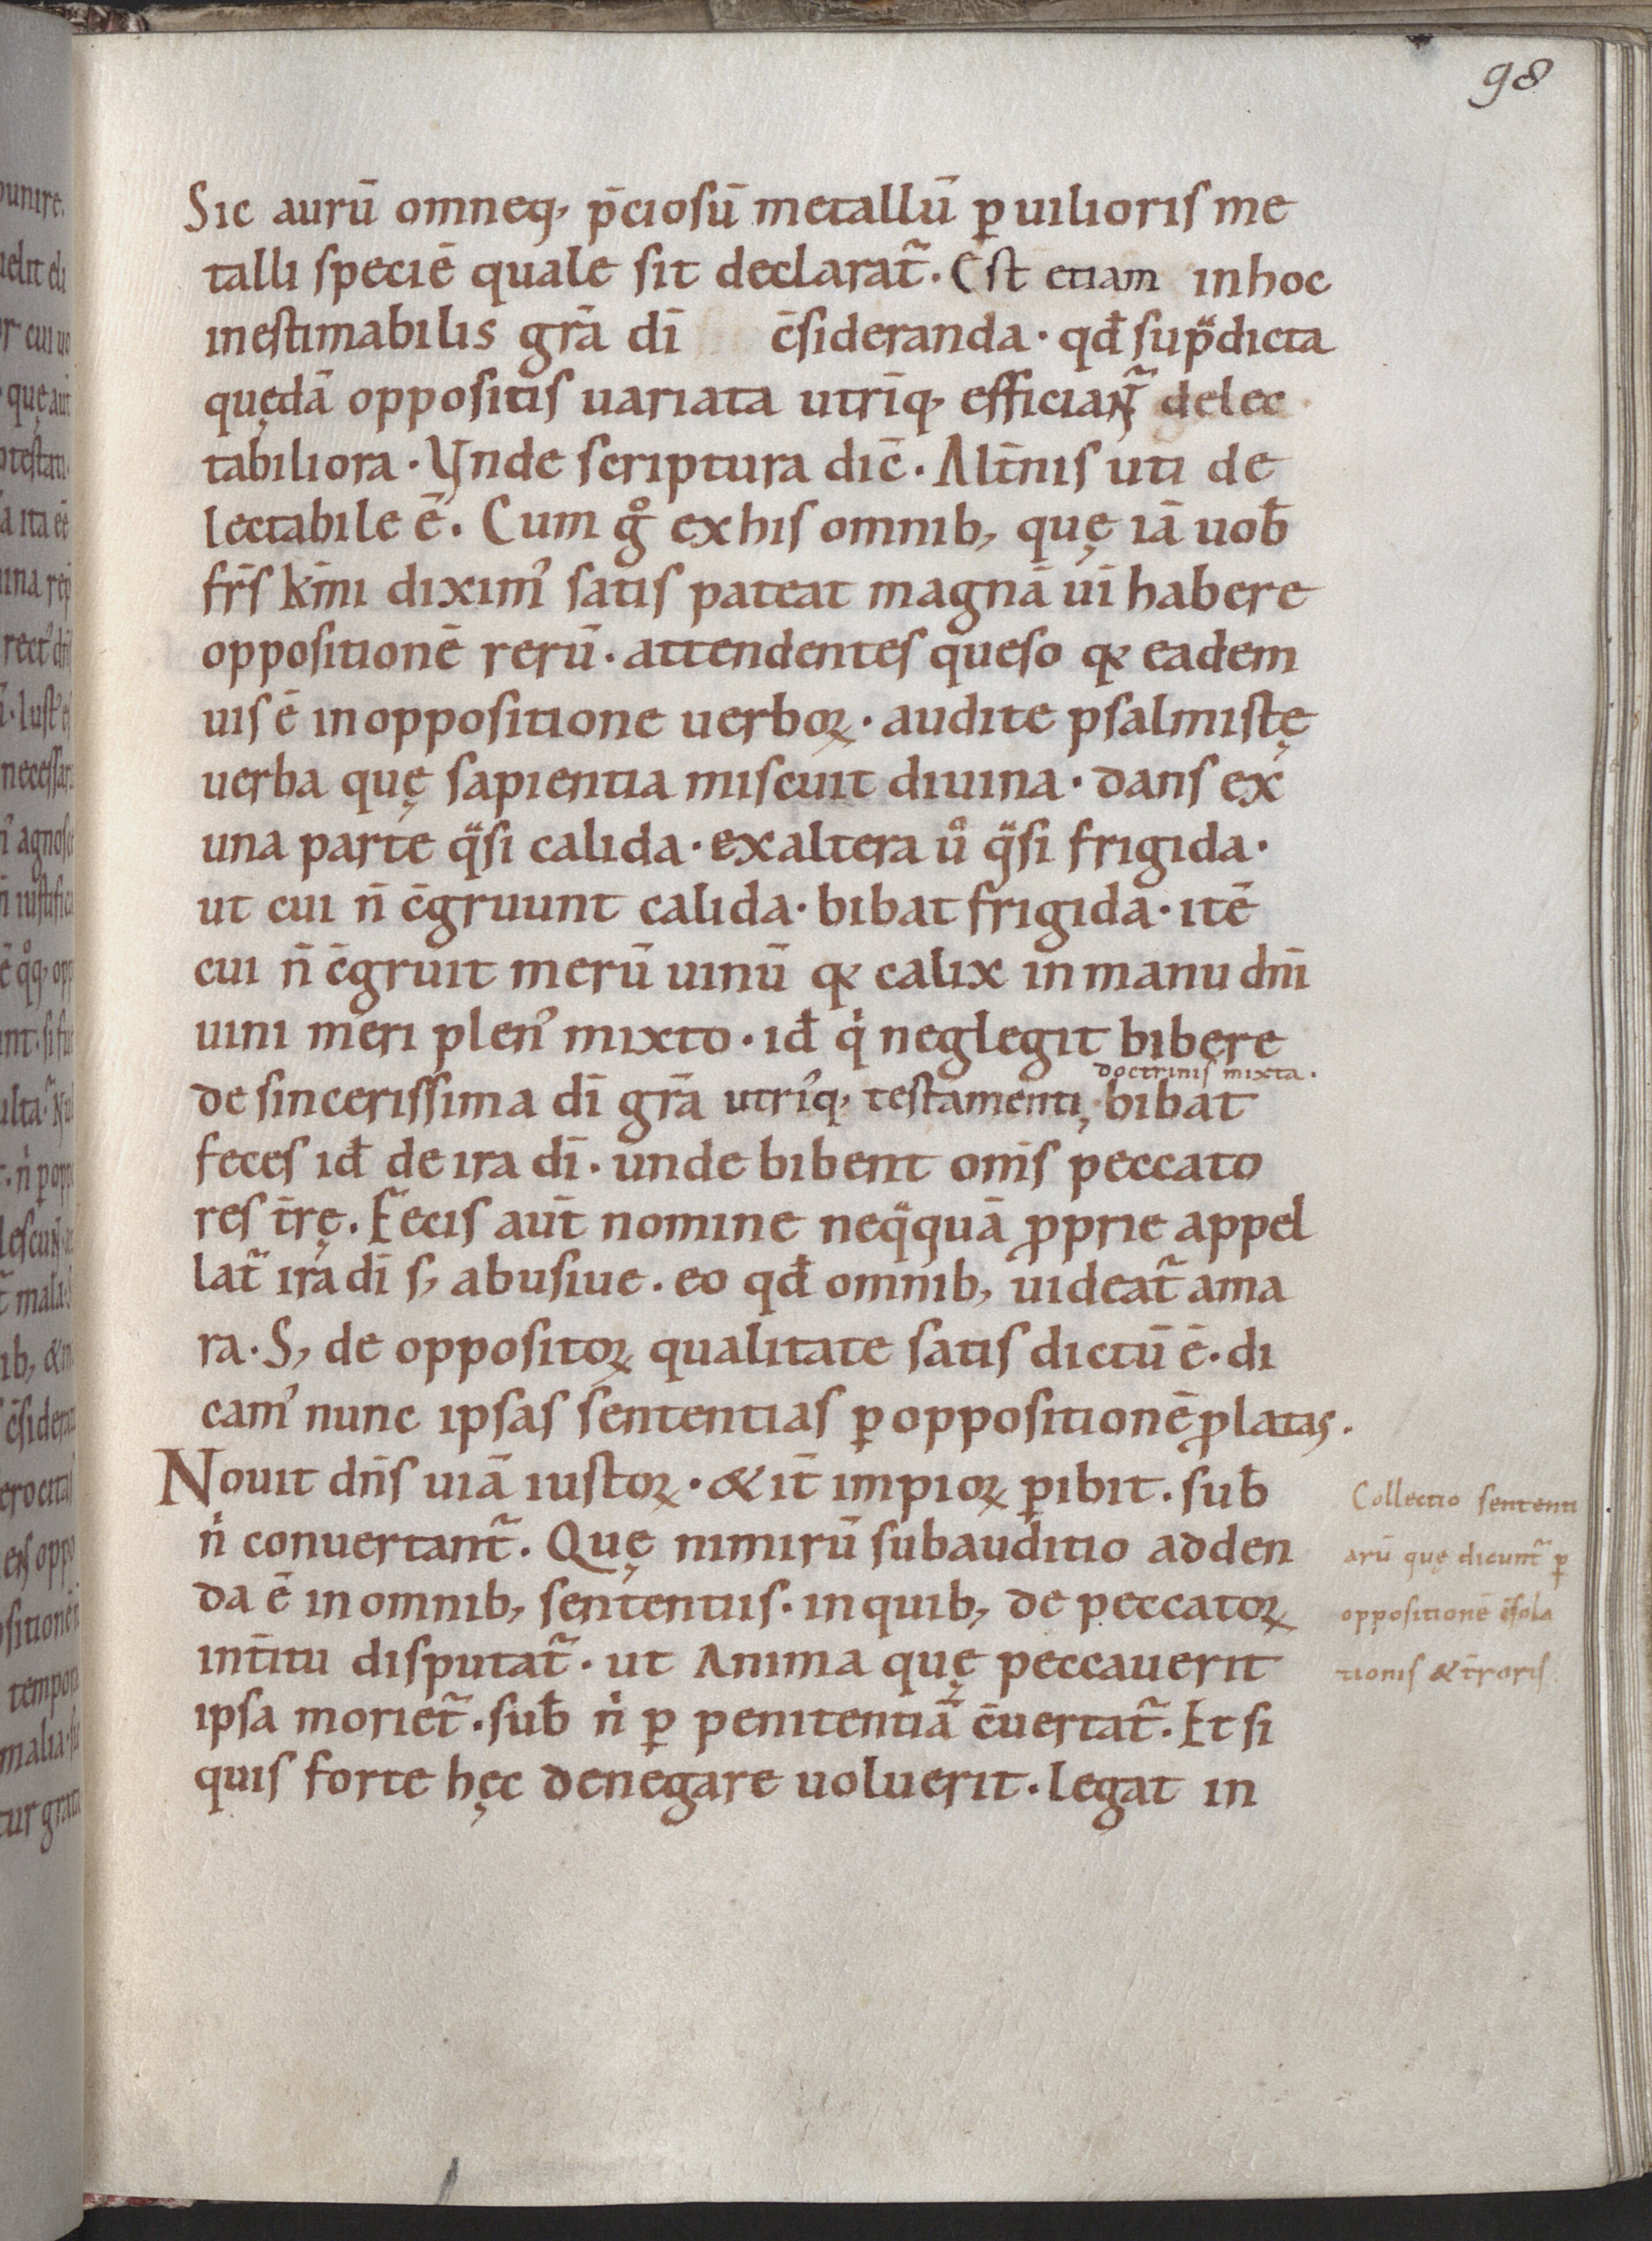 98
Sic aurū omneq, p̄ciosū metallū ꝑ uilioris me
talli speciē quale sit declarat᷑. Est etiam inhoc
inestimabilis grā dī c̄sideranda · qđ sup̈dicta
quędā oppositis uariata utrīq, efficiant᷑ delec
tabiliora · Vnde scriptura dic̄ · Alt̄nis uti de
lectabile ē. Cum gͦ exhis omnib, quę iā uob̄
fr̄s k̄mi diximꝰ satis pateat magnā uī habere
oppositionē rerū · attendentes queso qꝛ eadem
uis ē inoppositione uerboꝝ · audite psalmistę
uerba quę sapientia miscuit diuina · dans ex
una parte q̈si calida · exaltera uͦ q̈si frigida ·
ut cui n̄ c̄gruunt calida · bibat frigida · itē
cui n̄ c̄gruit merū uinū qꝛ calix in manu dnī
uini meri plenꝰ mixto · iđ qͥ neglegit bibere
doctrinis mixta .
de sincerissima dī grā utriꝰq, testamenti, bibat
feces iđ de ira dī · unde bibent om̄s peccato
res t̄rę. Fecis aūt nomine neq̈quā ꝓprie appel
lat᷑ ira dī s, abusiue . eo qđ omnib, uideat᷑ ama
ra · S, de oppositoꝝ qualitate satis dictū ē · di
camꝰ nunc ipsas sententias ꝑ oppositionē ꝓlatas .
Nouit dn̄s uiā iustoꝝ · & it̄ impioꝝ ꝑibit . sub̄
nͥ conuertant᷑. Quę nimirū subauditio adden
da ē inomnib, sententiis · inquib, de peccatoꝝ
int̄itu disputat᷑ · ut Anima quę peccauerit
ipsa moriet᷑ . sub̄ nͥ ꝑ penitentiā c̄uertat᷑. Et si
quis forte hęc denegare uoluerit · legat in
Collectio sententi
arū quę dicunt᷑ ꝑ
oppositionē c̄sola
tionis & t̄roris .